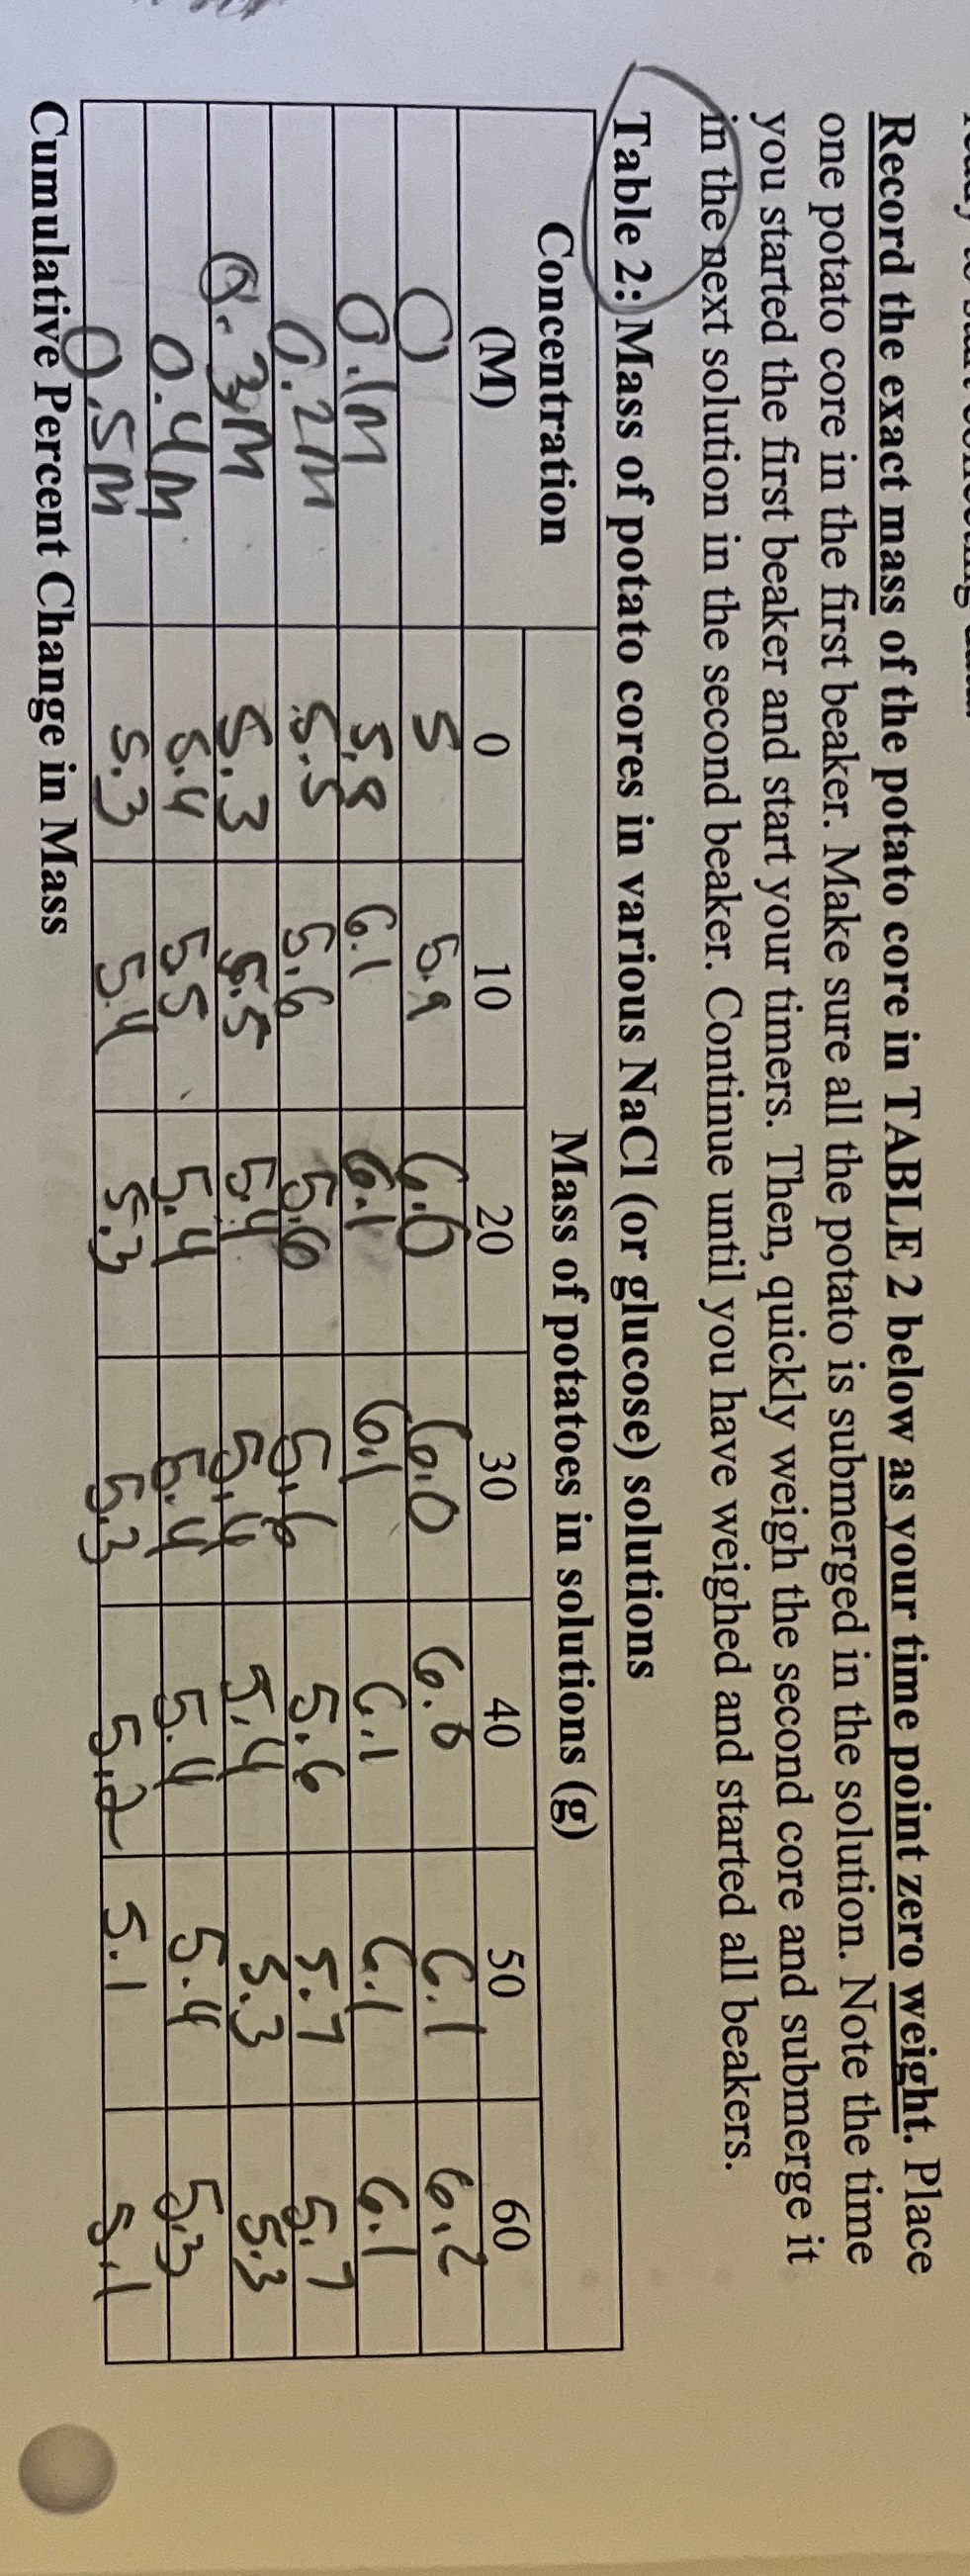 Record the exact mass of the potato core in TABLE 2 below as your time point zero weight. Place
one potato core in the first beaker. Make sure all the potato is submerged in the solution. Note the time
you started the first beaker and start your timers. Then, quickly weigh the second core and submerge it
in the next solution in the second beaker. Continue until you have weighed and started all beakers.
Table 2: Mass of potato cores in various NaCl (or glucose) solutions
Concentration (M) Mass of potatoes in solutions (g)
0 10 20 30 40 50 60
0 5 5.9 6.0 6.0 6.0 6.1 6.2
0.1M 5.8 6.1 6.1 6.1 6.1 6.1 6.1
0.2M 5.5 5.6 5.6 5.6 5.6 5.7 5.7
0.3M 5.3 5.5 5.4 5.4 5.4 5.3 5.3
0.4M 5.4 5.5 5.4 5.4 5.4 5.4 5.3
0.5M 5.3 5.4 5.3 5.3 5.2 5.1 5.1
Cumulative Percent Change in Mass